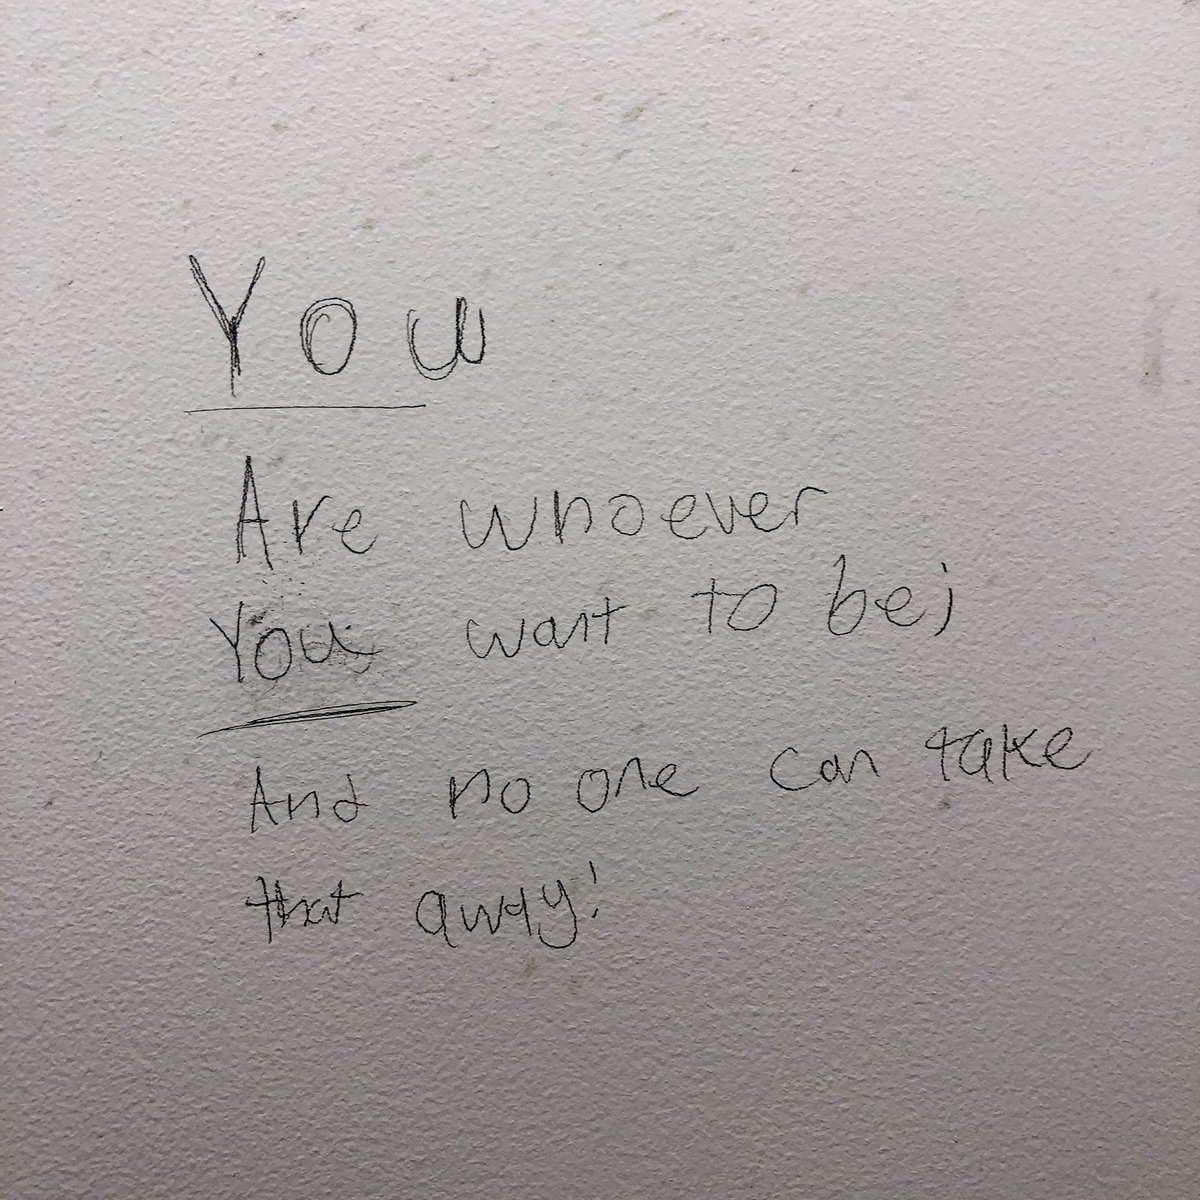 You
Are whoever
You want to be;
And no one can take
that away!